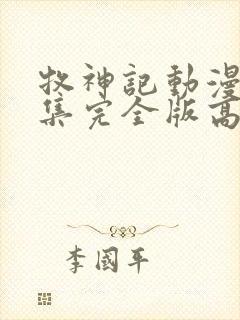 牧神記動漫
集完全版高
李國平